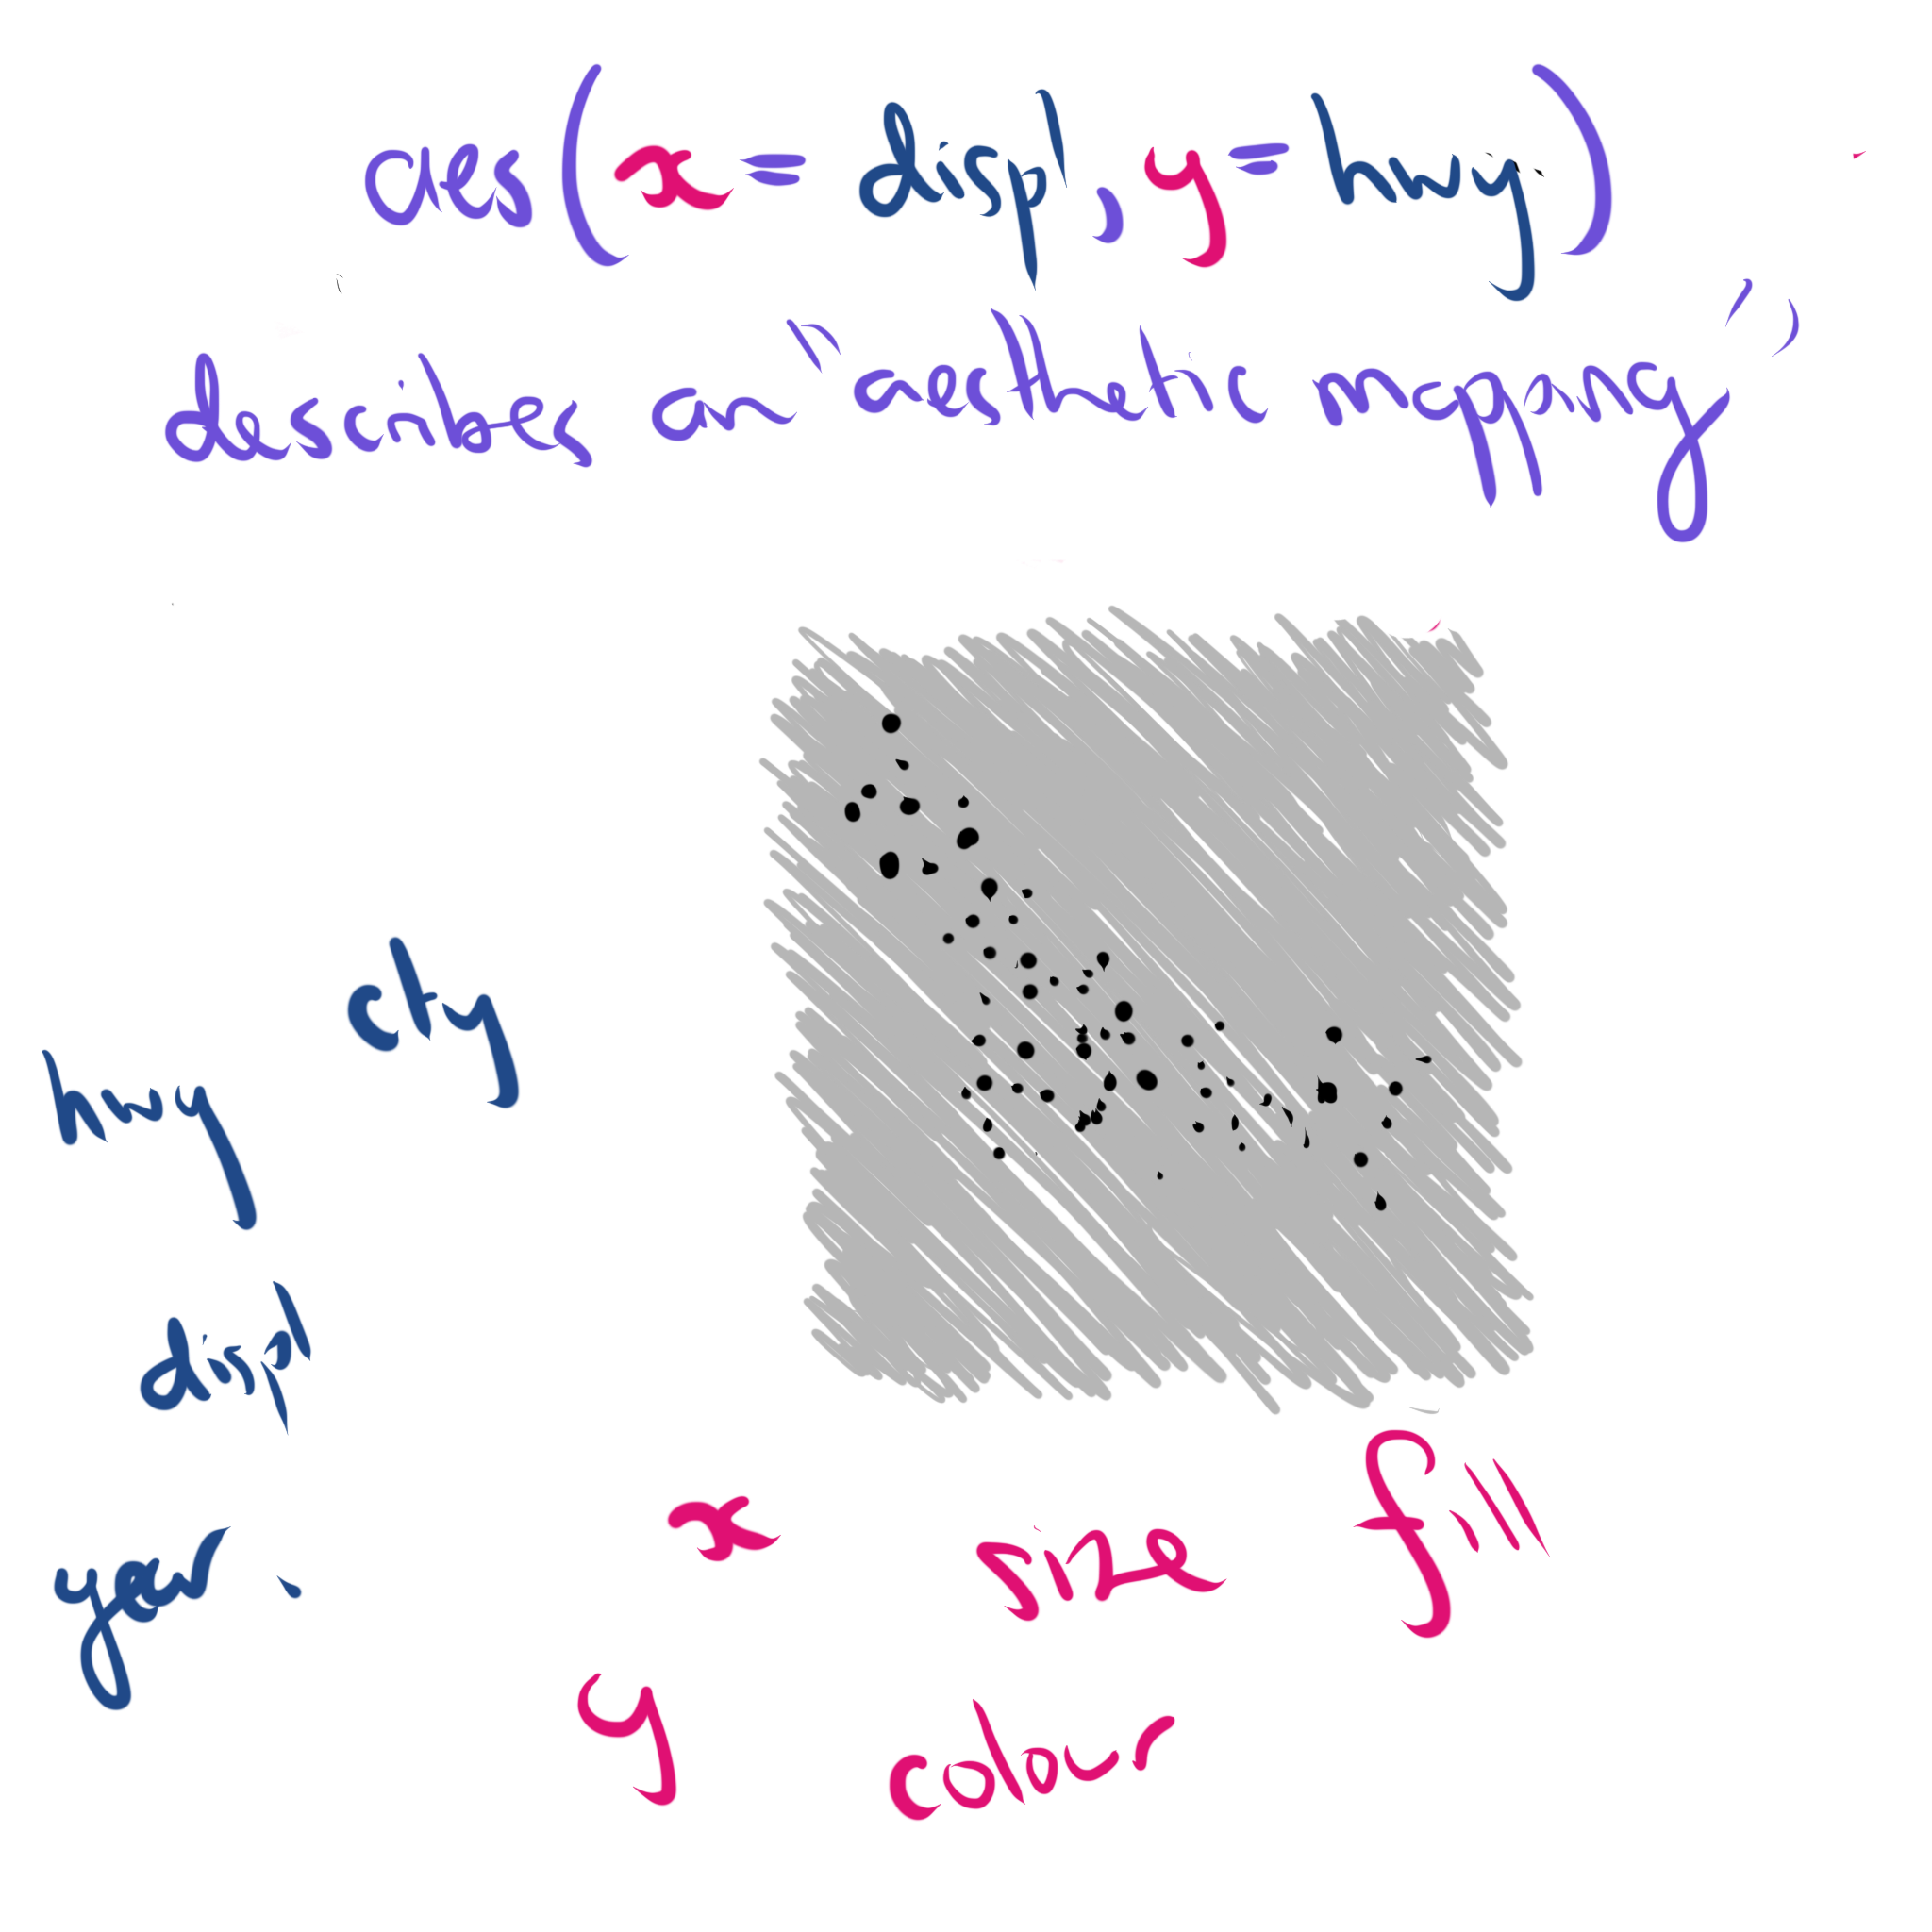 aes(x = displ, y = hwy)
describes an "aesthetic mapping"
cty
hwy
displ
year
x size fill
y colour